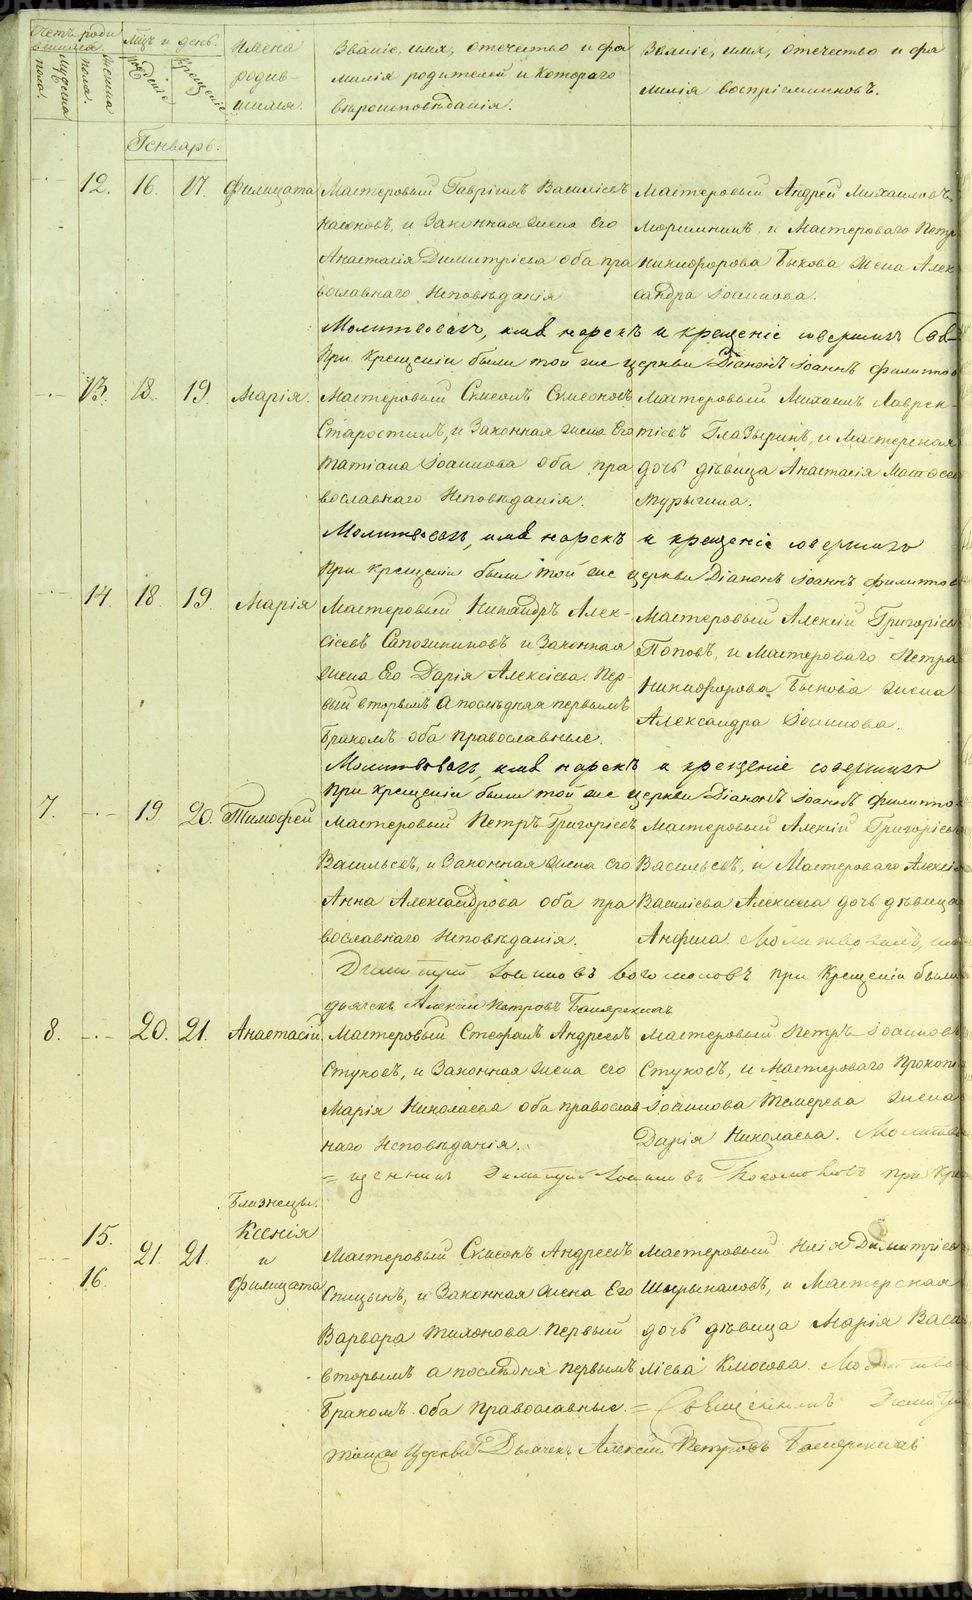 Счетъ роди
вшихся.
Мцъ и день.
Имена
родив-
шихся.
Званіе, имя, отечество и фа
милія родителей и котораго
вѣроисповѣданія.
Званіе, имя, отечество и фа
милія воспріемниковъ.
мужеска
пола.
женска
пола.
рожденіе
крещеніе
Генварь.
12. 16. 17. Филицата
Мастеровый Гавріилъ Василіевъ
и Законная жена Его
Анастасія Димитріева оба пра
вославнаго Исповѣданія
Мастеровый Андрей Михаиловъ
и Мастероваго Петра
Никифорова Быкова жена Алек
сандра Іоаннова.
Молитвовалъ, имя нарекъ и крещеніе совершилъ
При Крещеніи были той же церкви Діаконъ Іоаннъ Филиппо
13. 18. 19. Марія.
Мастеровый Симеонъ Симеоновъ
Старостинъ, и Законная жена Его
Татіана Іоаннова оба пра
вославнаго Исповѣданія.
Мастеровый Михаилъ Лаврен-
тіевъ Глазыринъ, и Мастерская
дочь дѣвица Анастасія
Мурыгина.
Молитвовалъ, имя нарекъ и крещеніе совершилъ
При крещеніи были той же церкви Діаконъ Іоаннъ Филиппов
14. 18. 19. Марія
Мастеровый Никандръ Алек-
сіевъ Сапожниковъ и Законная
жена Его Дарія Алексіева. Пер-
вый вторымъ а послѣдняя первымъ
Бракомъ оба православные.
Мастеровый Алексій Григоріев
Поповъ, и Мастероваго Петра
Никифорова Быкова жена
Александра Іоаннова.
Молитвовалъ, имя нарекъ и крещеніе совершилъ
При крещеніи были той же церкви Діаконъ Іоаннъ Филиппо
7. 19. 20. Тимофей
Мастеровый Петръ Григоріевъ
Васильевъ, и Законная жена его
Анна Александрова оба пра
вославнаго Исповѣданія.
Мастеровый Алексій Григоріев
Васильевъ, и Мастероваго Алексі
Василіева Алексіева дочь дѣвица
Анфиса Молитвовалъ,
Димитрій Іоанновъ Богомоловъ при Крещеніи были
дьячекъ Алексій Петровъ
8. 20. 21. Анастасій
Мастеровый Стефанъ Андреевъ
Стуковъ, и Законная жена его
Марія Николаева оба православ
наго Исповѣданія.
Мастеровый Петръ Іоаннов
Стуковъ, и Мастероваго Прокопі
Іоаннова Темерева жена
Дарія Николаева. Молитво
Димитрій Іоанновъ Богомоловъ при Кре
Близнецы.
15.
16.
21. 21.
Ксенія
и
Филицата
Мастеровый Симеонъ Андреевъ
Спицынъ, и Законная жена Его
Варвара Тихонова первый
вторымъ а послѣдня первымъ
Бракомъ оба Православные.
Мастеровый Илія Димитріев
и Мастерская
дочь дѣвица Марія Васи
ліева Клюсова.
= Священникъ
тояже Церкви Дьячекъ Алексій Петровъ